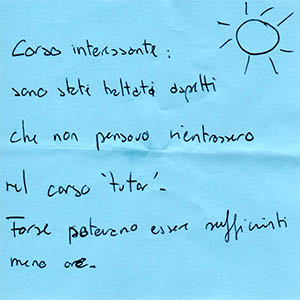 Corso interessante:
sono stati trattati aspetti
che non pensavo rientrassero
nel corso "tutor".
Forse potevano essere sufficienti
meno ore.